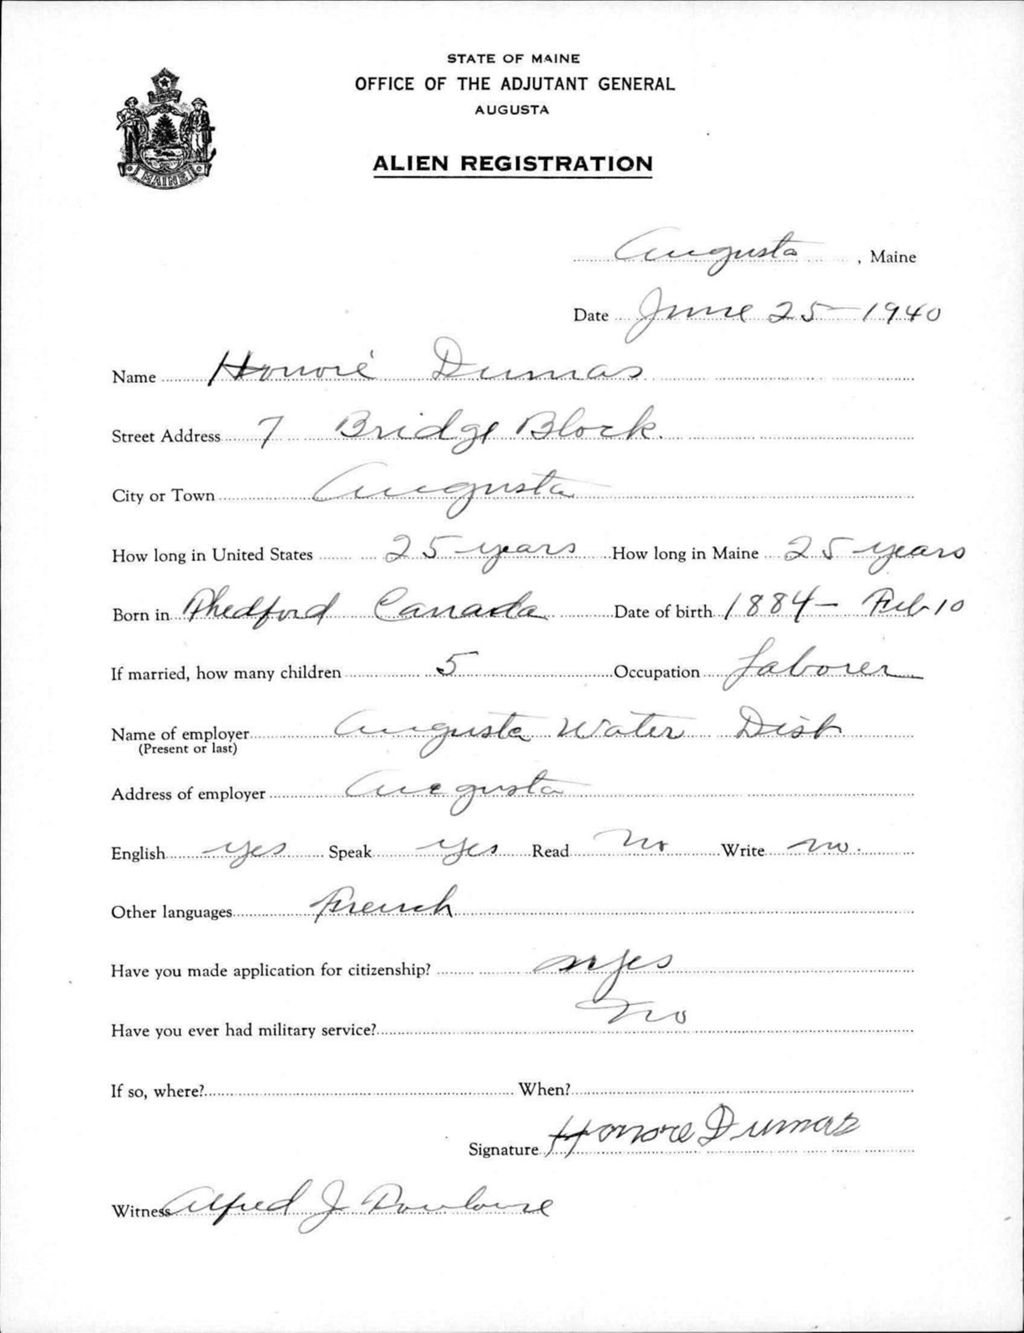 STATE OF MAINE
OFFICE OF THE ADJUTANT GENERAL
AUGUSTA
ALIEN REGISTRATION
MAINE
Augusta, Maine
Date June 25-1940
Name Honoré Dumas
Street Address 7 Bridge Block.
City or Town Augusta
How long in United States 25 years How long in Maine 25 years
Born in Thedford Canada Date of birth 1884 - Feb 10
If married, how many children 5 Occupation Laborer
Name of employer Augusta Water Dist
(Present or last)
Address of employer Augusta
English yes Speak yes Read No Write no.
Other languages French
Have you made application for citizenship? yes
Have you ever had military service? No
If so, where? When?
Signature Honore Dumas
Witness Alfred J